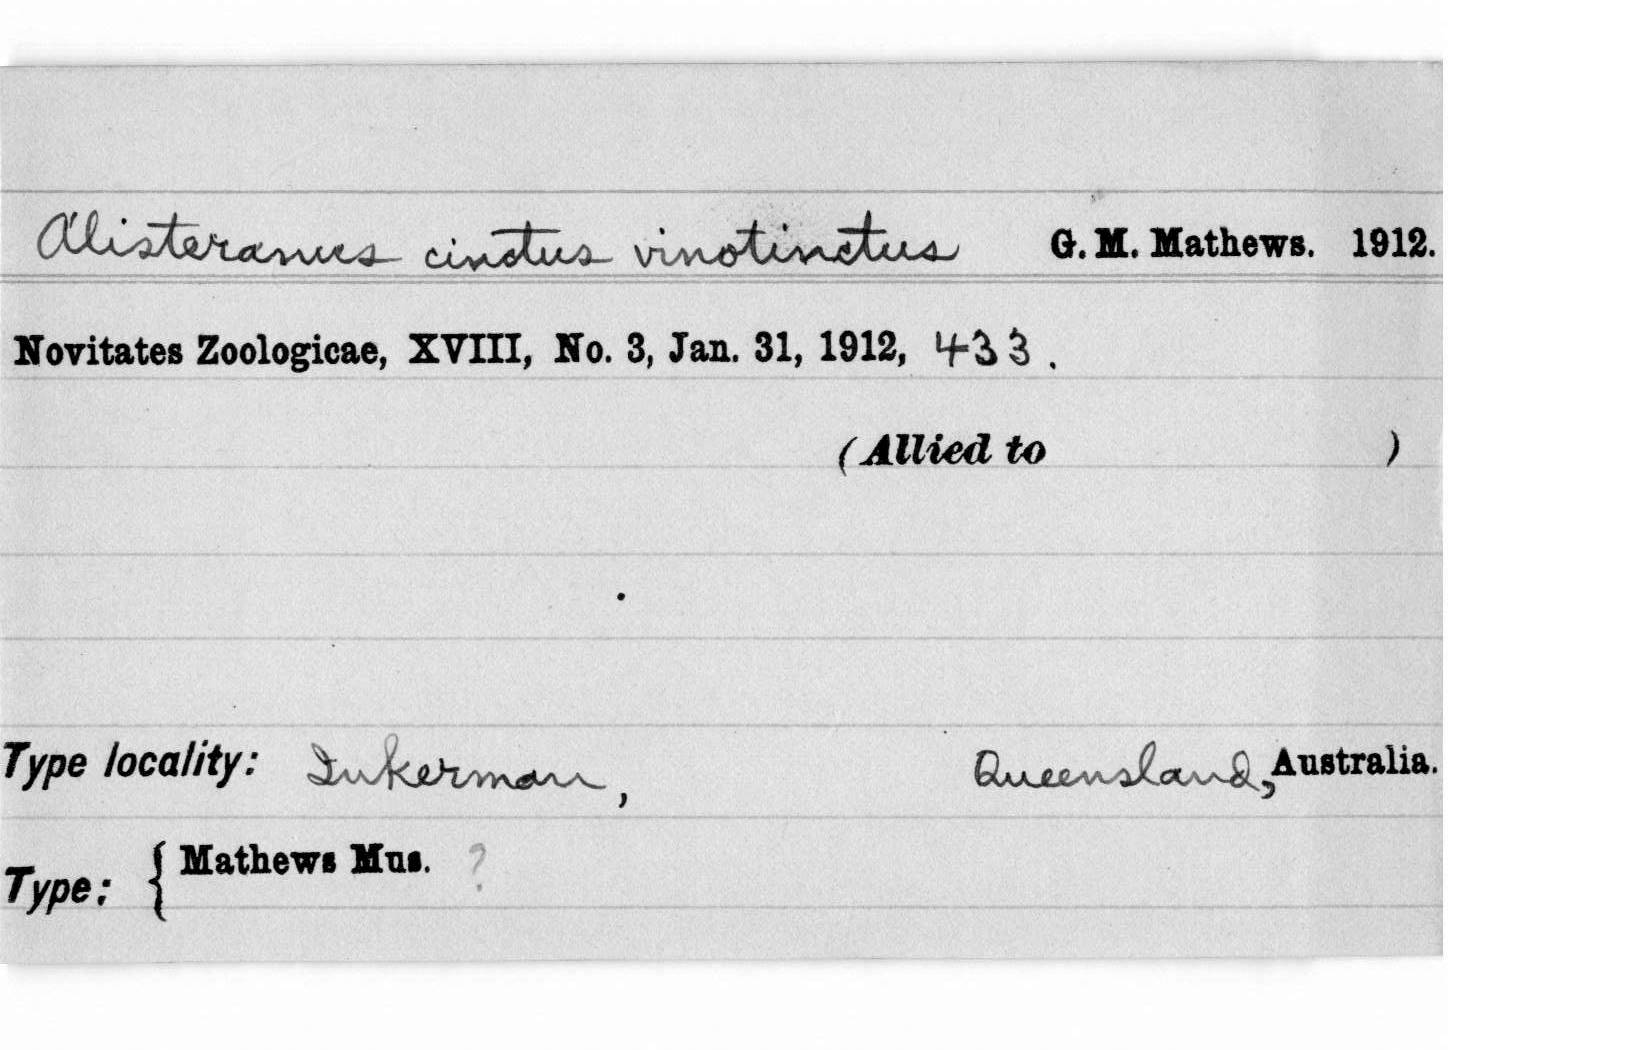 Alisteranus cinctus vinotinctus G. M. Mathews. 1912.
Novitates Zoologicae, XVIII, No. 3, Jan. 31, 1912, 433.
(Allied to )
Type locality: Inkerman, Queensland, Australia.
Type: { Mathews Mus. ?